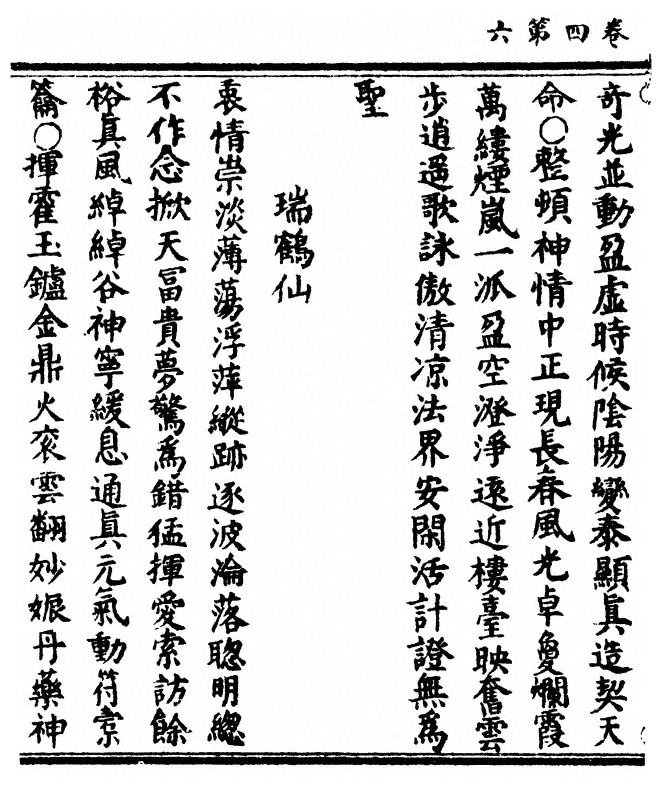 卷四第六
奇光並動盈虛時候陰陽變泰顯眞造契天
命○整頓神情中正現長春風光卓敻爛霞
萬縷煙嵐一派盈空澄淨遠近樓臺映奮雲
步逍遥歌詠傲清凉法界安閑活計證無爲
聖
瑞鶴仙
衷情崇淡薄蕩浮萍縱跡逐波淪落聰明總
不作念掀天冨貴夢驚爲錯猛揮愛索訪餘
裕眞風綽綽谷神寧緩息通眞元氣動符橐
籥○揮霍玉鑪金鼎火衮雲翻妙娠丹藥神